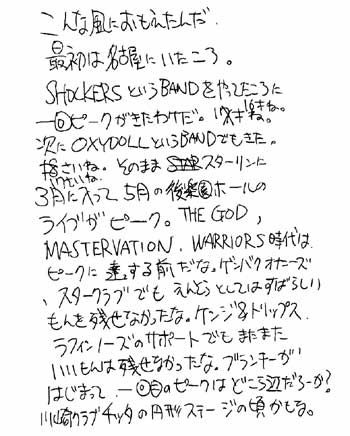 こんな風におもえたんだ.
最初は名古屋にいたころ。
SHOCKERSというBANDをやってたころに
一回ピークがきたわけだ。17才 16才ね。
次にOXYDOLLというBANDでもきた。
18さいね。そのままスターリンに
17さいね。
3月に入って5月の後楽園ホールの
ライブがピーク。THE GOD,
MASTERVATION. WARRIORS時代は
ピークに達する前だな。ゲンバクオナニーズ
、スタークラブでもえんそうとしてはすばらしい
もんを残せなかったな。ケンジ&トリップス.
ラフィンノーズのサポートでもまたまた
いいもんは残せなかったな。ブランキーが
はじまって一回目のピークはどこら辺だろーか?
川崎クラブチッタの円形ステージの頃かもな。